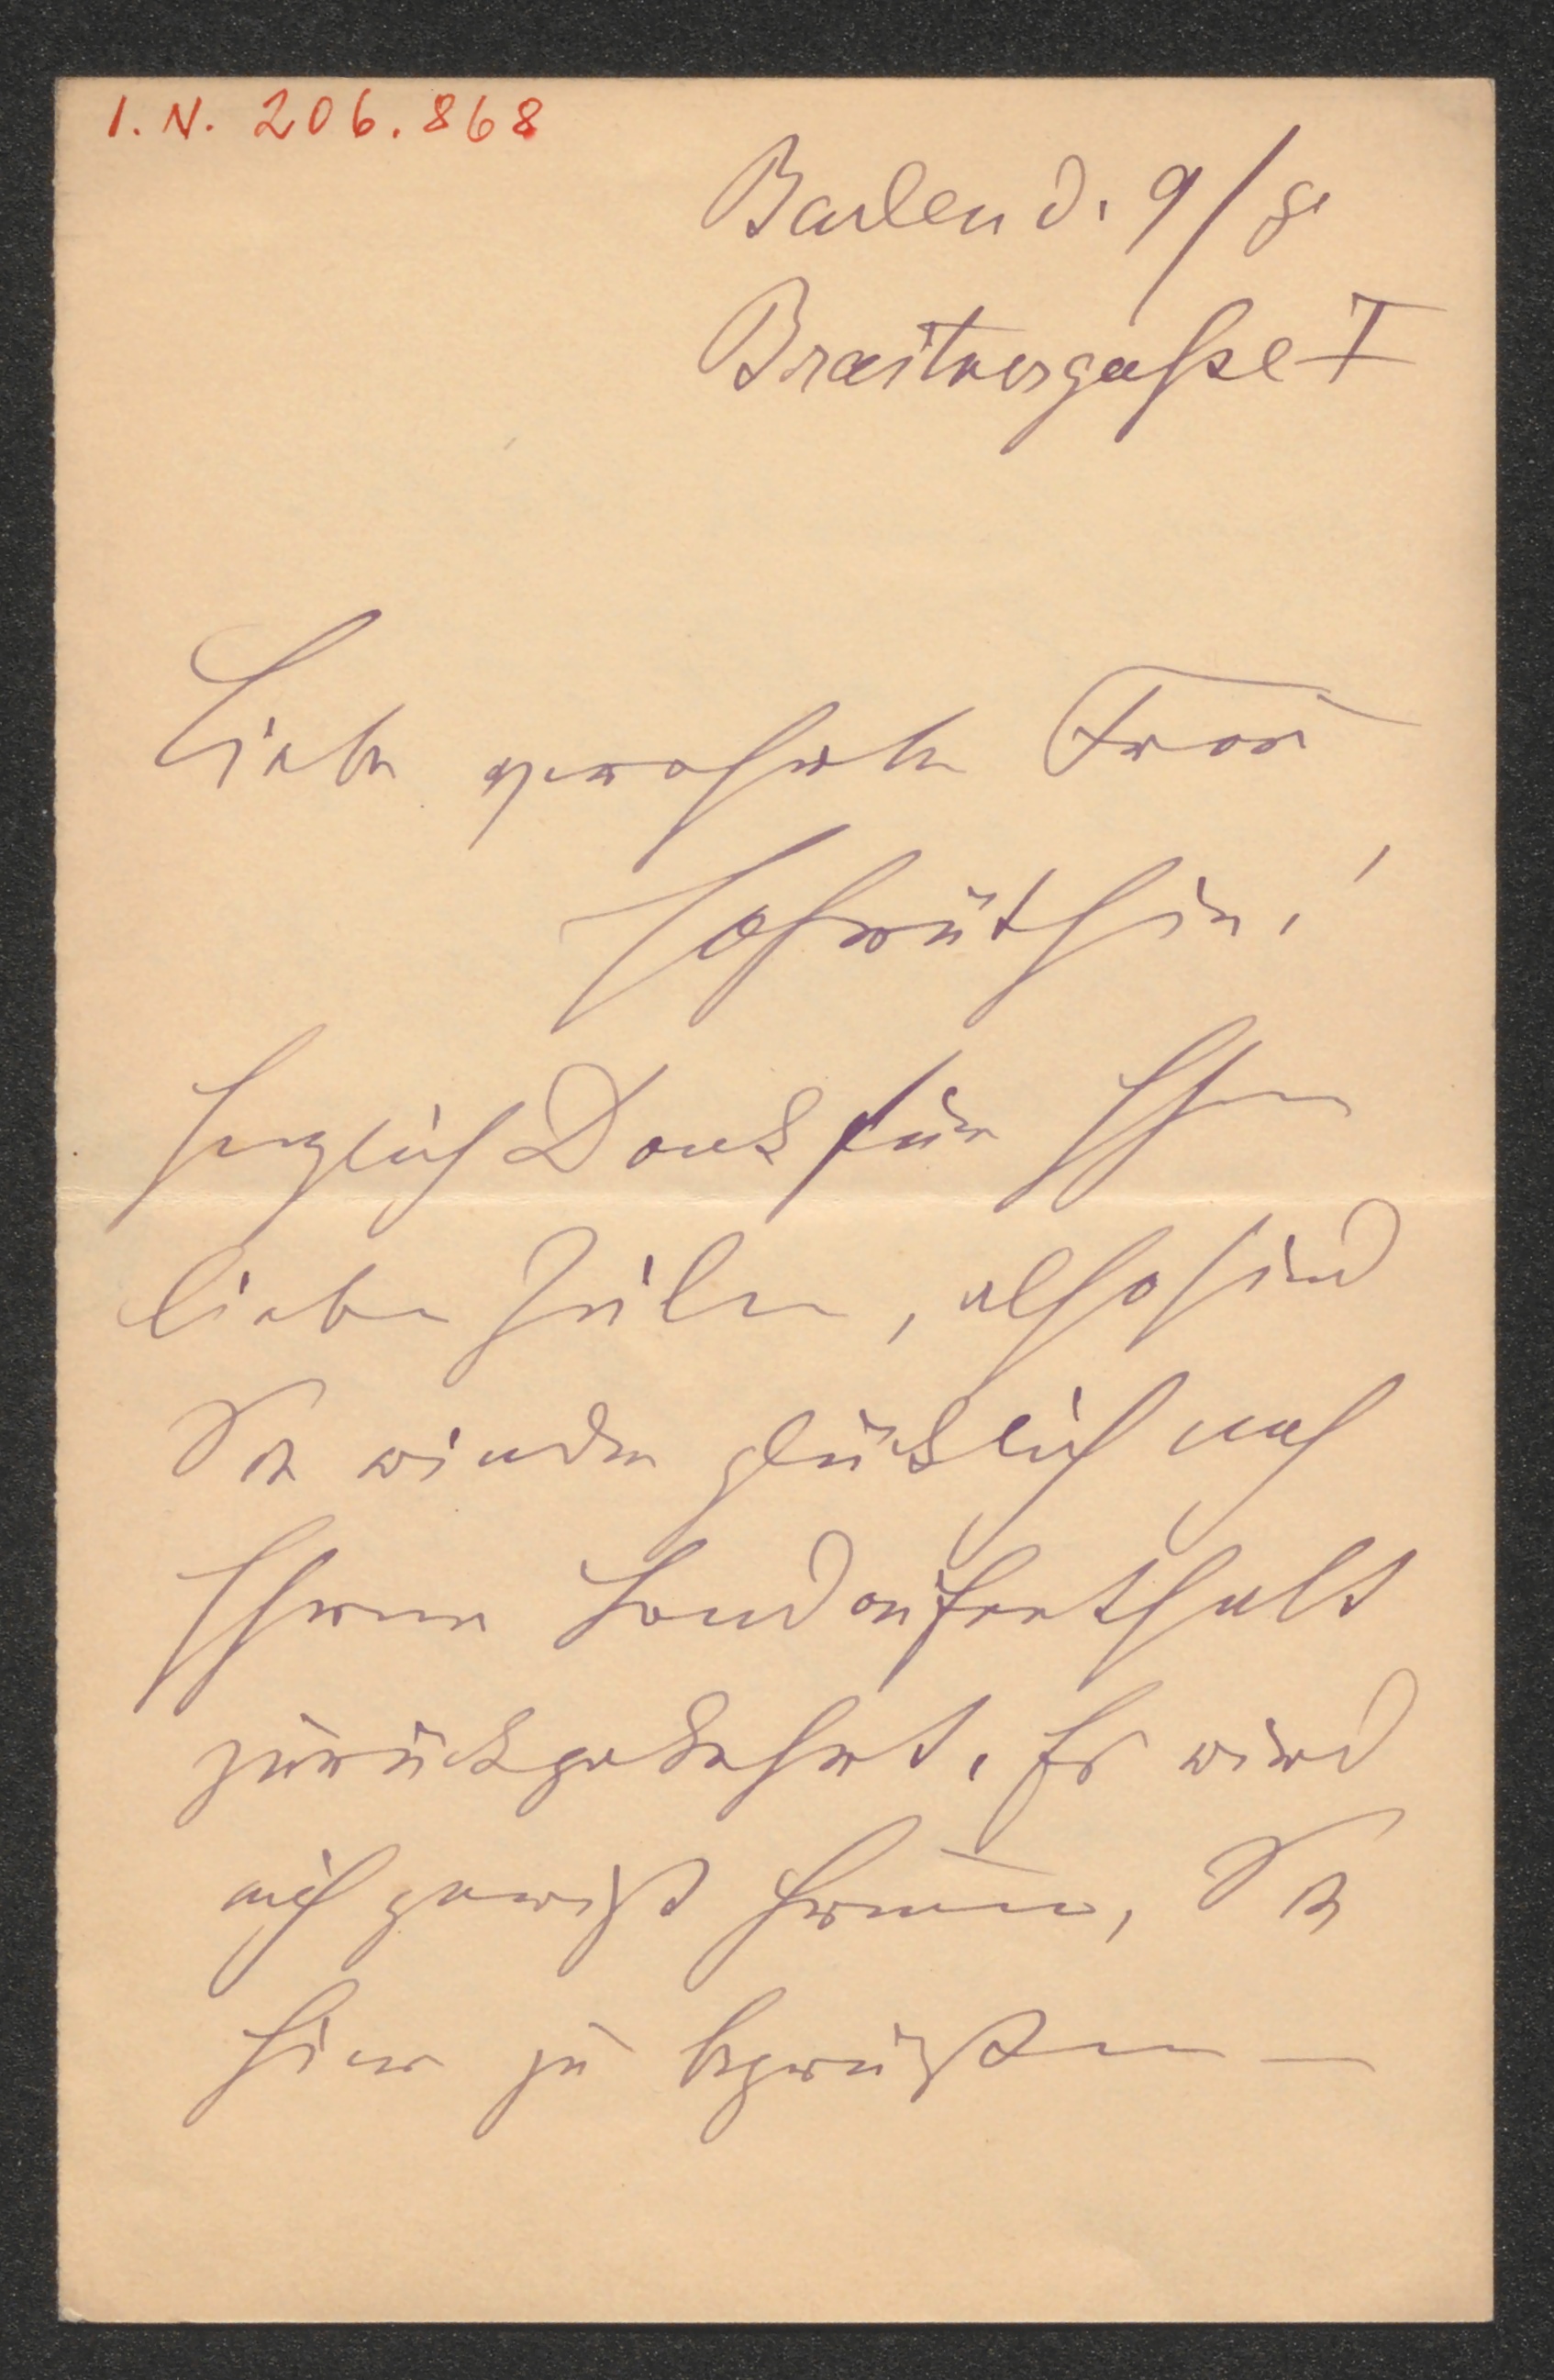 I. N. 206.868
Baden d. 9/9.
Braitnergasse I
Liebe verehrte Frau
Hofräthin!
Herzlich Dank für Ihre
lieben Zeilen, also sind
Sie wieder glücklich nach
Ihrem Landaufenthalt
zurückgekehrt. Es wird
mich gewiß freuen, Sie
hier zu begrüßen —